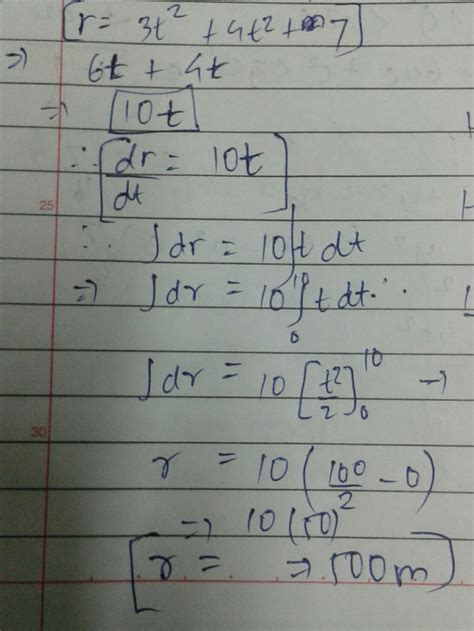 [r = 3t² + 4t² + 7]
⇒ 6t + 4t
⇒ 10t
∴ [dr/dt = 10t]
25
∴ ∫dr = 10∫t dt
⇒ ∫dr = 10 ∫₀¹⁰ t dt ∴
∫dr = 10 [t²/2]₀¹⁰ →
30
r = 10 (100/2 - 0)
⇒ 10 (50)²
[r = ⇒ 500m]